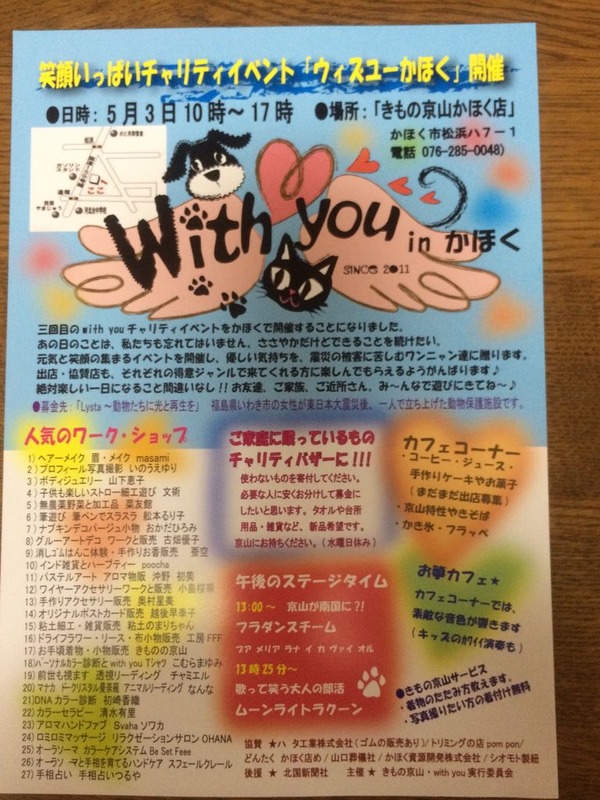 笑顔いっぱいチャリティイベント「ウィズユーかほく」開催
●日時：5月3日10時～17時　●場所：「きもの京山かほく店」
かほく市松浜ハ7－1
電話 076-285-0048）
ここ
With you in かほく
SINCE 2011
三回目のwith youチャリティイベントをかほくで開催することになりました。
あの日のことは、私たちも忘れてはいません。ささやかだけどできることを続けたい。
元気と笑顔の集まるイベントを開催し、優しい気持ちを、震災の被害に苦しむワンニャン達に贈ります。
出店・協賛店も、それぞれの得意ジャンルで来てくれる方に楽しんでもらえるようがんばります♪
絶対楽しい一日になること間違いなし！！お友達、ご家族、ご近所さん、み～んなで遊びにきてね～♪
●募金先：「Lysta ～動物たちに光と再生を」　福島県いわき市の女性が東日本大震災後、一人で立ち上げた動物保護施設です。
人気のワーク・ショップ
1）ヘアーメイク　眉・メイク　masami
2）プロフィール写真撮影　いのうえゆり
3）ボディジュエリー　山下恵子
4）子供も楽しいストロー細工遊び　文術
5）無農薬野菜と加工品　菜友館
6）筆遊び　筆ペンでスラスラ　舩本るり子
7）ナプキンデコパージュ小物　おかだひろみ
8）グルーアートデコ　ワークと販売　古畑優子
9）消しゴムはんこ体験・手作りお香販売　蚕空
10）インド雑貨とハーブティー　poocha
11）パステルアート　アロマ物販　沖野　初美
12）ワイヤーアクセサリーワークと販売　小島桜華
13）手作りアクセサリー販売　奥村星美
14）オリジナルポストカード販売　越後早季子
15）粘土細工・雑貨販売　粘土のまりちゃん
16）ドライフラワー・リース・布小物販売　工房FFF
17）お手頃着物・小物販売　きものの京山
18）パーソナルカラー診断とwith you Tシャツ　こむらまゆみ
19）前世も視ます　透視リーディング　チャミエル
20）マナカード・クリスタル曼荼羅　アニマルリーディング　なんな
21）DNAカラー診断　初崎香織
22）カラーセラピー　清水有里
23）アロマハンドファブ　Svaha ソワカ
24）ロミロミマッサージ　リラクゼーションサロンOHANA
25）オーラソーマ　カラーケアシステム Be Set Feee
26）オーラソーマと手相を育てるハンドケア　スフェールクレール
27）手相占い　手相占いつるや
ご家庭に眠っているもの
チャリティバザーに！！！
使わないものを寄付してください。
必要な人に安くお分けして募金に
したいと思います。タオルや台所
用品・雑貨など、新品希望です。
京山にお持ちください。（水曜日休み）
午後のステージタイム
13：00～　京山が南国に？！
フラダンスチーム
プア メリア ラナ イ カ ヴァイ オル
13時25分～
歌って笑う大人の部活
ムーンライトラクーン
カフェコーナー
・コーヒー・ジュース・
手作りケーキやお菓子
（まだまだ出店募集）
・京山特性やきそば
・かき氷・フラッペ
お箏カフェ★
カフェコーナーでは、
素敵な音色が響きます
（キッズのカワイイ演奏も）
●きもの京山サービス
・着物のたたみ方教えます。
・写真撮りたい方の着付け無料
協賛　★ハタ工業株式会社（ゴムの販売あり）/トリミングの店 pom pon/
どんたく かほく店め/山口葬儀社/かほく資源開発株式会社/シオモト製紐
後援　★　北国新聞社　　主催　★　きもの京山・with you 実行委員会